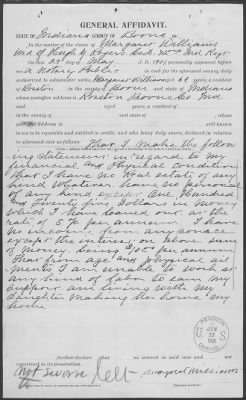 GENERAL AFFIDAVIT.
STATE OF Indiana COUNTY OF Boone, ss:
In the matter of the claim of Margaret Williams
Wid of Hugh
on this day of May A. D. 1901 personally appeared before me
a Notary Public in and for the aforesaid county, duly
authorized to administer oaths Margaret Williams aged 69 years, a resident
of in the county of Boone and State of Indiana
whose postoffice address is Boone Co Ind
aged years, a resident of
in the county of and state of
whose postoffice address is
well known to be reputable and entitled to credit, and who being duly sworn, declared in relation
to aforesaid case as follows: That I make the follow
ing statement in regard to my
financial and Physical Condition
that I have no Real estate of any
kind whatever have no personal
of any kind except One Hundred
and Twenty five Dollars in money
which I have loaned out at the
rate of per annum I have
no income from any source
except the interest on above sum
of money being per annum
That from age and physical ail
ments I am unable to work at
any kind of labor to earn my
support am living with my
Daughter making her home my
home
further declare that no interest in said case and
not concerned in its prosecution.
not sworn
to
Margaret Williams
U.S. PENSION OFFICE
JUN
1901